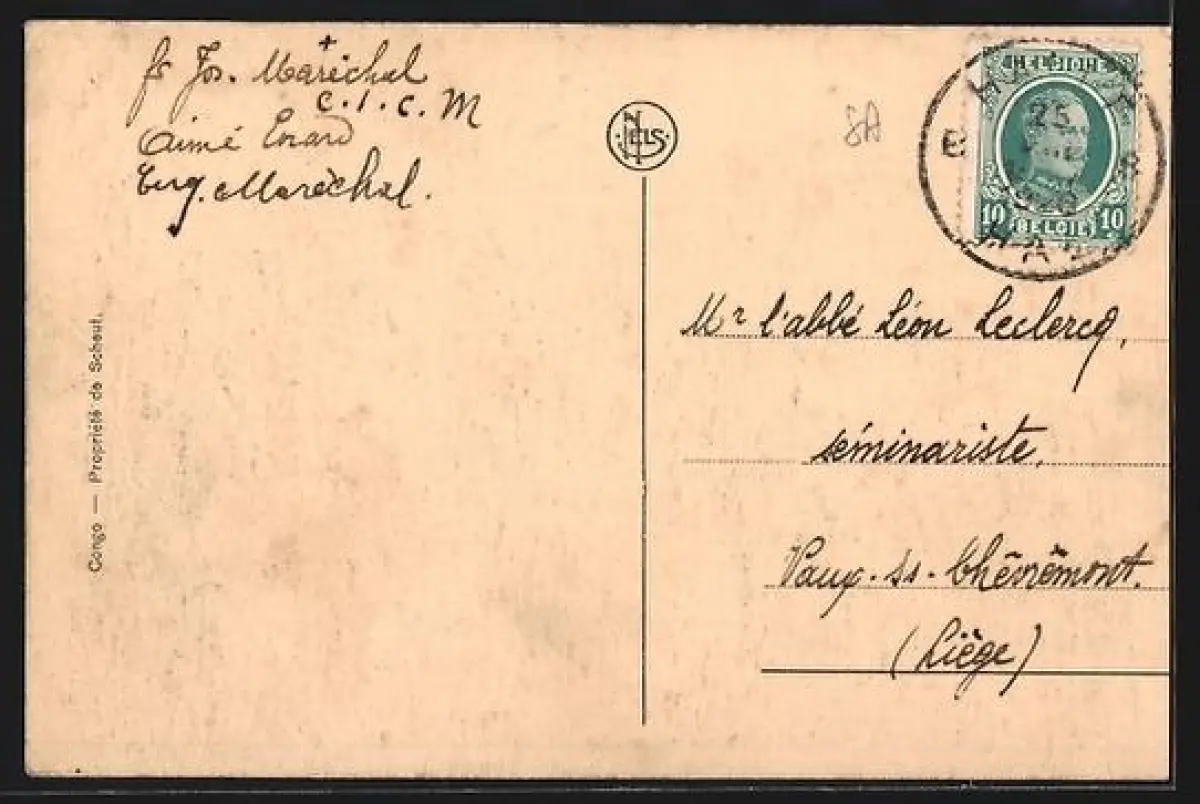 fr Jos. Maréchal
C.I.C.M
Aimé Evrard
Eug. Maréchal.
NELS
8A
25
10 BELGIE 10
Mr l'abbé Léon Leclercq,
séminariste,
Vaux-ss-Chêvremont.
(Liège)
Congo — Propriété de Scheut.